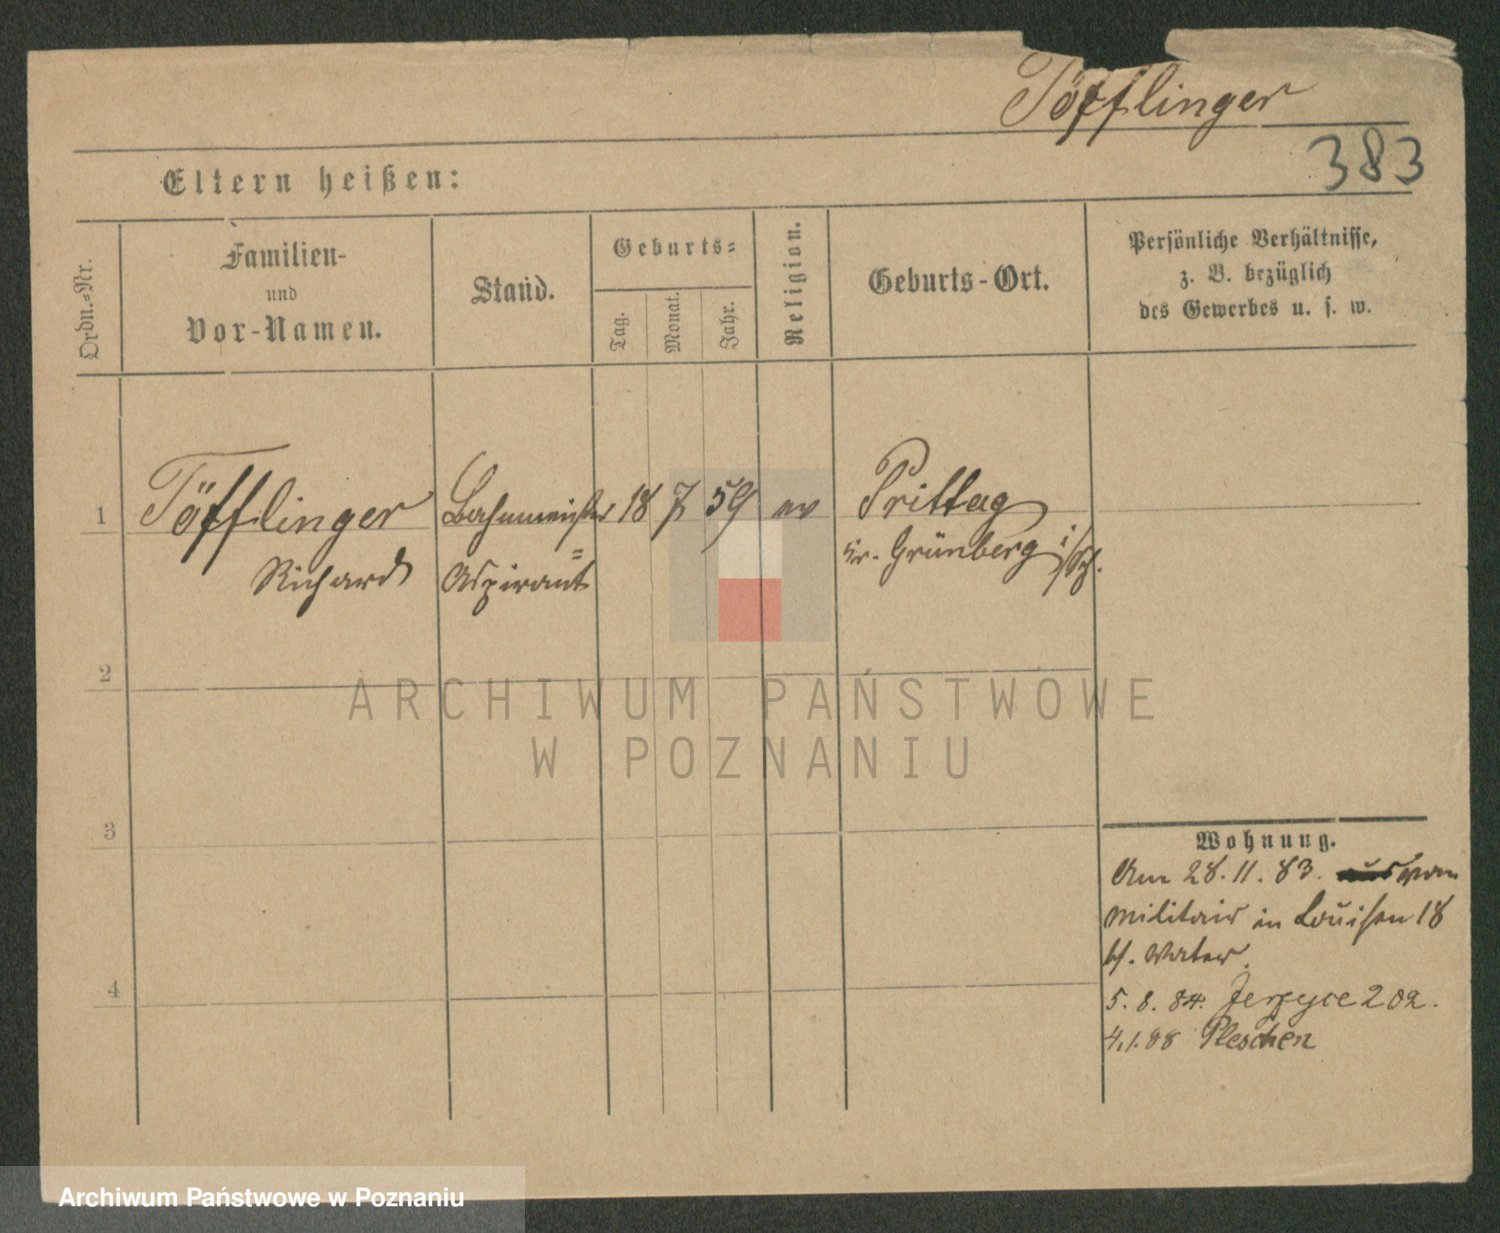 Töfflinger
383
Eltern heißen:
Ordn.=Nr.
Familien-
und
Vor-Namen.
Stand.
Geburts=
Tag.
Monat.
Jahr.
Religion.
Geburts-Ort.
Persönliche Verhältnisse,
z. B. bezüglich
des Gewerbes u. s. w.
1
Töfflinger
Richard
Bahnmeister
=
Aspirant
18
7
59
ev
Prittag
Kr. Grünberg i/Sch.
2
3
4
Wohnung.
Am 28.11.83. aus vom
Militair in Louisen 18
b/. Vater.
5.8.84. Jerzyce 202.
4.1.88 Pleschen
ARCHIWUM PAŃSTWOWE
W POZNANIU
Archiwum Państwowe w Poznaniu